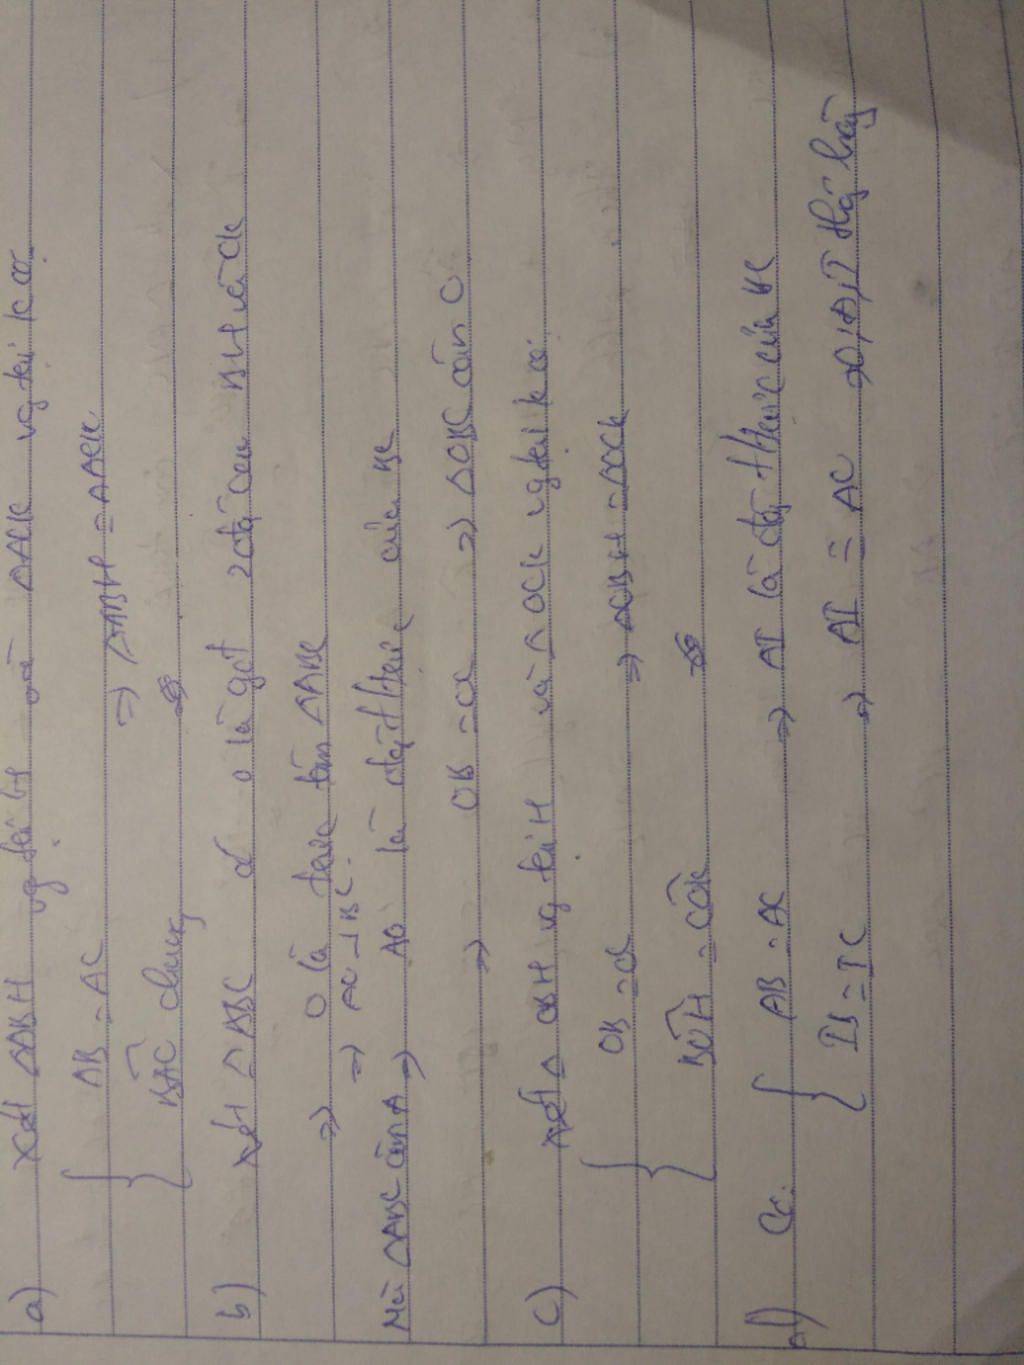 a) Xét ΔABH vg tại H và ΔACK vg tại K có
{ AB = AC
BAC chung
=> ΔABH = ΔACK
b) Xét ΔABC có O là gđ 2 đg cao BH và CK
=> O là trực tâm ΔABC
=> AO ⊥ BC
Mà ΔABC cân A => AO là đg t/trực của BC
=> OB = OC => ΔOBC cân O
c) Xét Δ OBH vg tại H và Δ OCK vg tại K có:
{ OB = OC
BOH = COK
=> ΔOBH = ΔOCK
d) Có: { AB = AC
IB = IC
=> AI là đg t/trực của BC
=> AI ≡ AO => O, A, I thg hàng